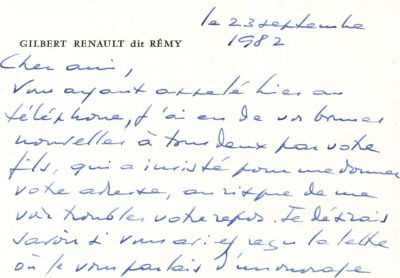 le 23 septembre
1982
GILBERT RENAULT dit RÉMY
Cher ami,
Vous ayant appelé hier au
téléphone, j'ai eu de vos bonnes
nouvelles à tous deux par votre
fils, qui a insisté pour me donner
votre adresse, au risque de me
voir troubler votre repos. Je désirais
savoir si vous aviez reçu la lettre
où je vous parlais d'un ouvrage